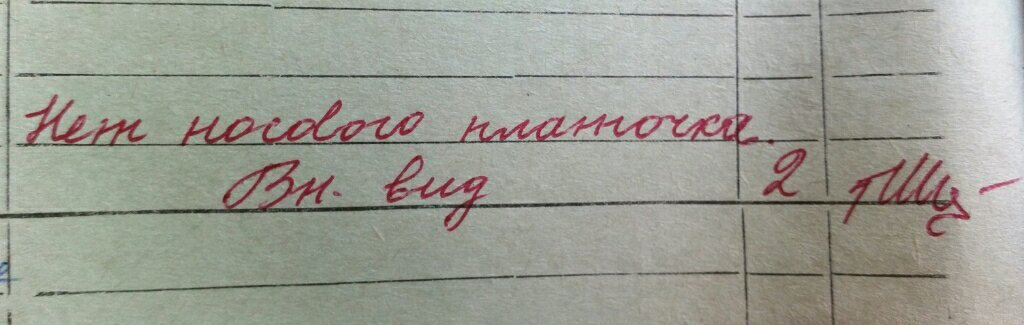 Нет носового платочка.
Вн. вид 2